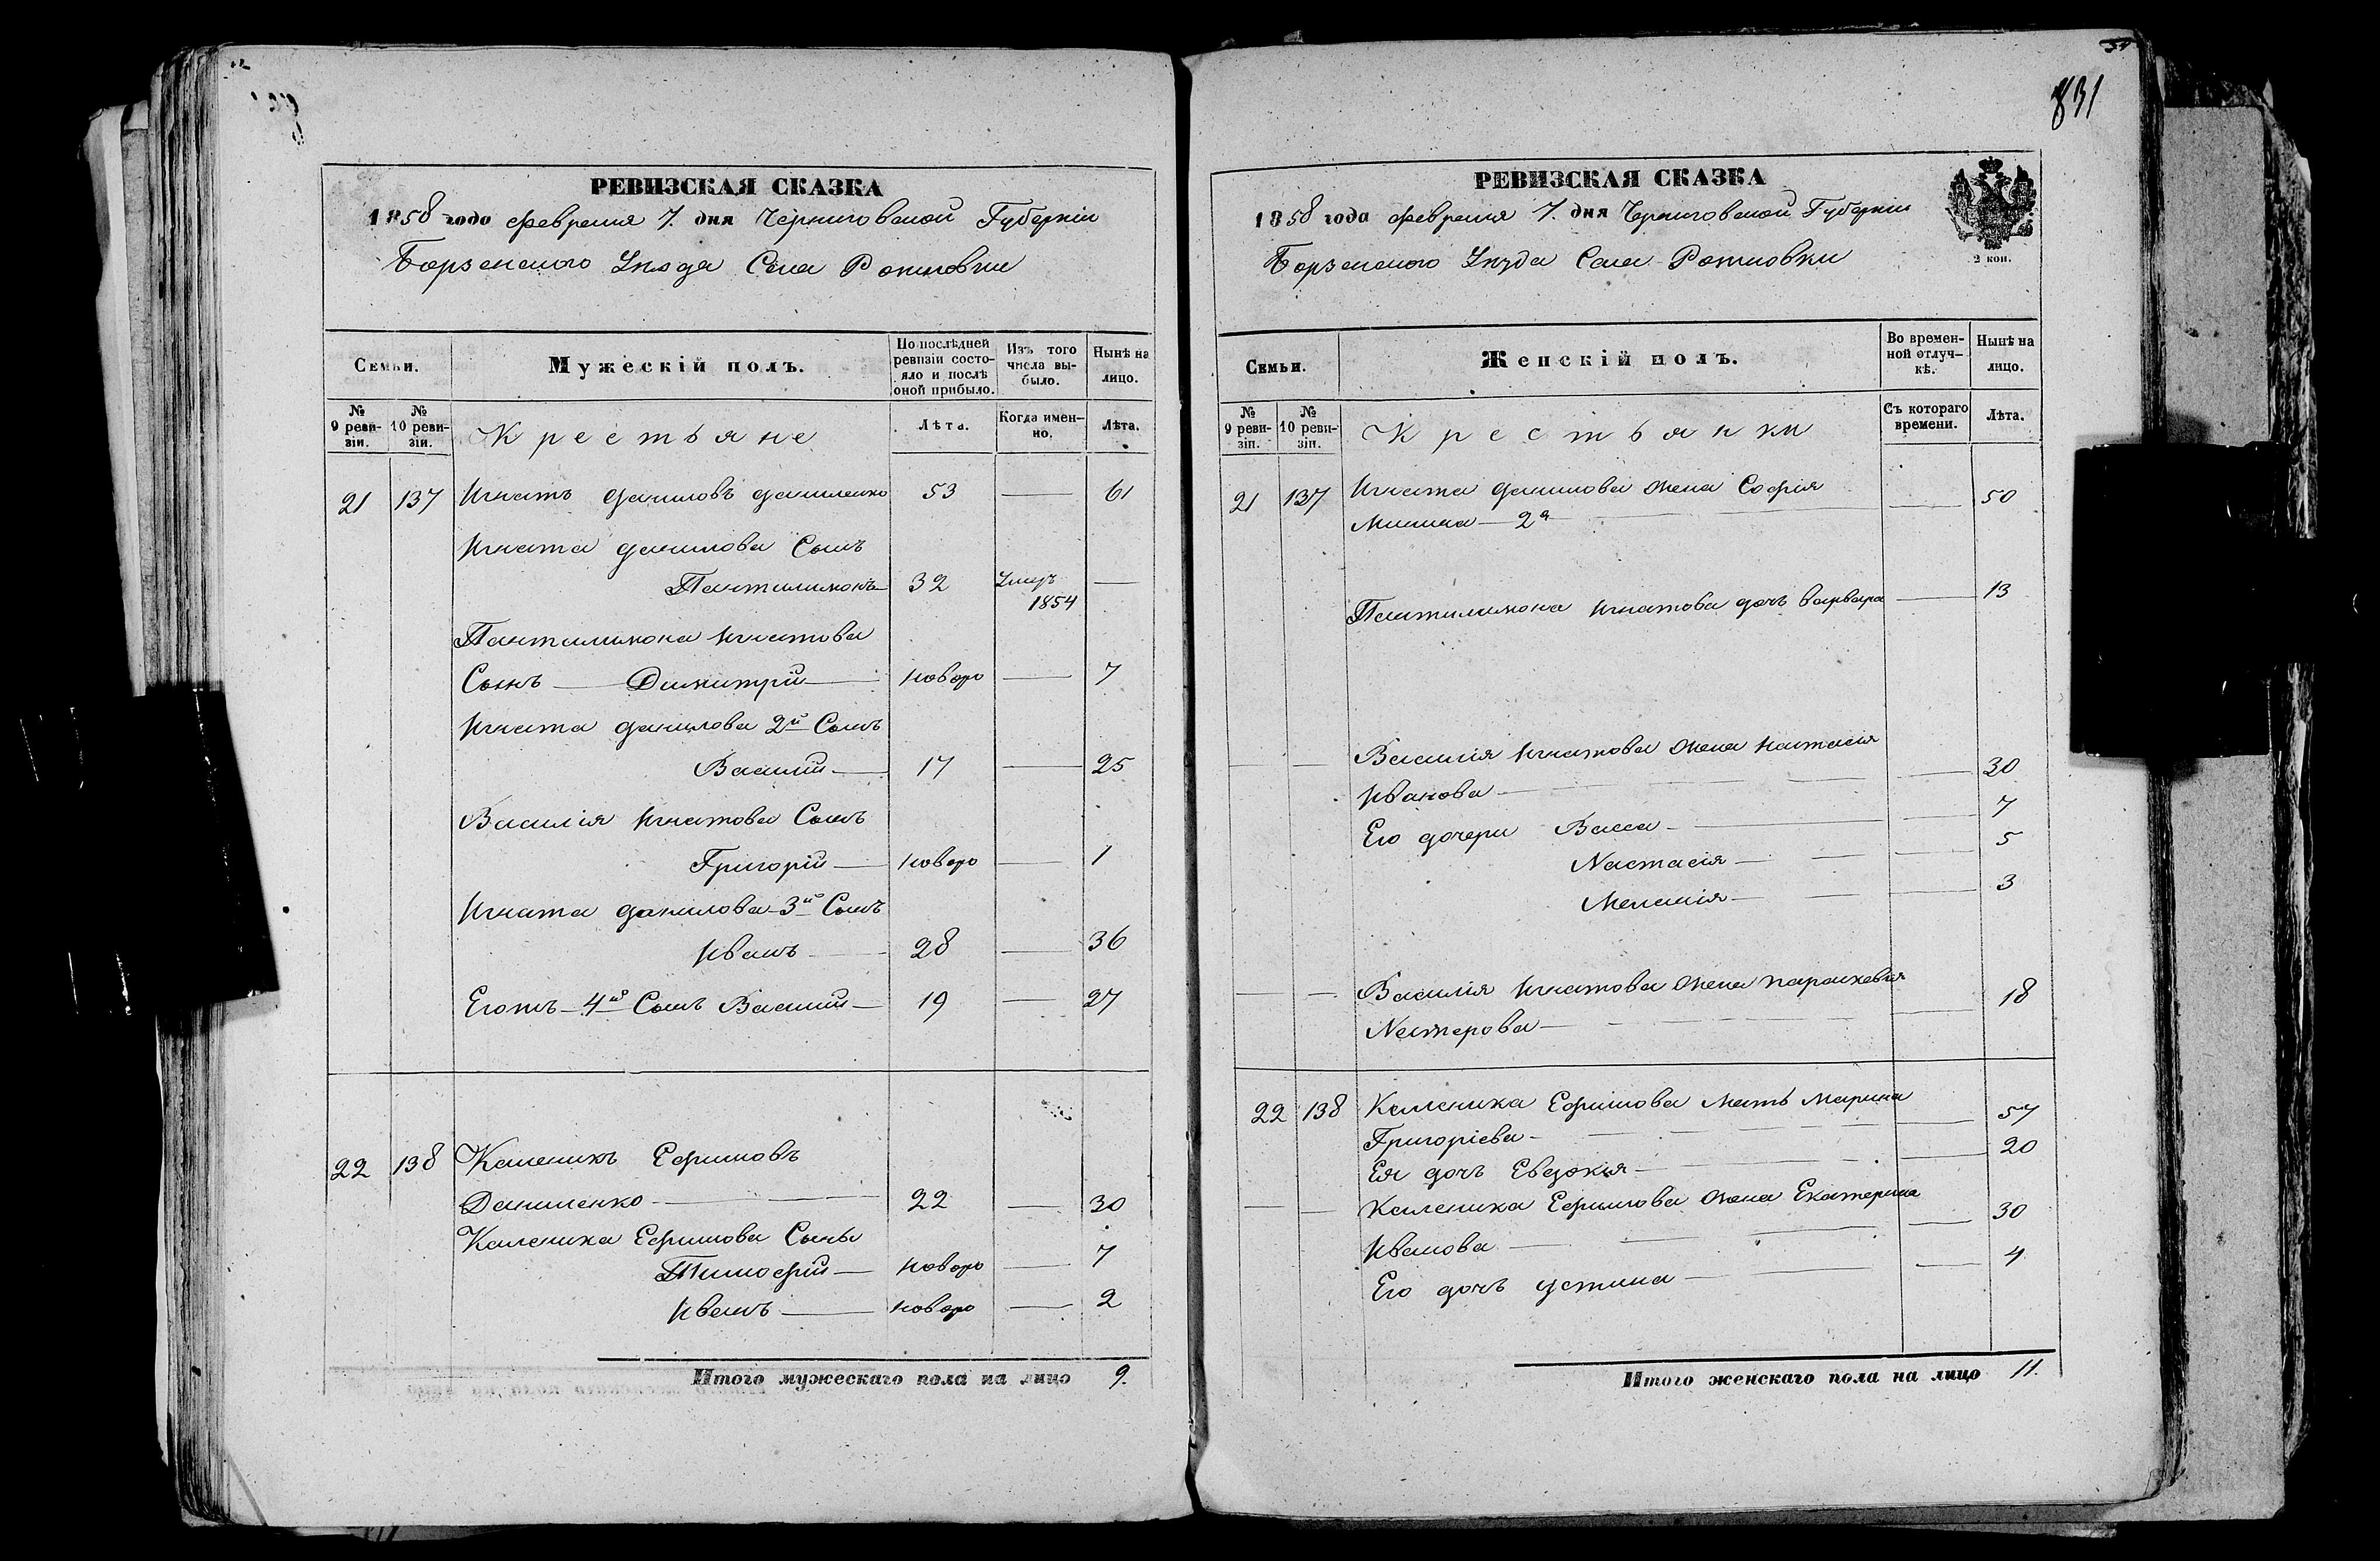 РЕВИЗСКАЯ СКАЗКА
1858 года февраля 7. дня Черниговской Губерніи
Борзенского Уѣзда Села
Семьи.
Мужескій полъ.
По послѣдней ревизіи состояло и послѣ оной прибыло.
Изъ того числа выбыло.
Нынѣ на лицо.
№ 9 ревизіи.
№ 10 ревизіи.
Крестьяне
Лѣта.
Когда именно.
Лѣта.
21 137 Игнатъ Даниловъ Даниленко 53 — 61
Игната Данилова Сынъ
Пантилимонъ 32 Умеръ 1854 —
Пантилимона Игнатова
Сынъ — Димитрій — новоро — 7
Игната Данилова 2й Сынъ
Василій — 17 — 25
Василія Игнатова Сынъ
Григорій — новоро — 1
Игната Данилова 3й Сынъ
Иванъ — 28 — 36
Егожъ — 4й Сынъ Василій — 19 — 27
22 138 Каленикъ Ефимовъ
Даниленко — 22 — 30
Каленика Ефимова Сыны
Тимофій — новоро — 7
Иванъ — новоро — 2
Итого мужескаго пола на лицо 9.
831
РЕВИЗСКАЯ СКАЗКА
1858 года февраля 7. дня Черниговской Губерніи
Борзенского Уѣзда Села
2 коп.
Семьи.
Женскій полъ.
Во временной отлучкѣ.
Нынѣ на лицо.
№ 9 ревизіи.
№ 10 ревизіи.
Крестьянки
Съ котораго времени.
Лѣта.
21 137 Игната Данилова жена Софія — 50
2я
Пантилимона Игнатова дочь Варвара — 13
Василія Игнатова жена Настасія
Иванова — 30
Его дочери Васса — 7
Настасія — 5
Меланія — 3
Василія Игнатова жена Параскевія — 18
Нестерова —
22 138 Каленика Ефимова мать Марина
Григоріева — 57
Ея дочь Евдокія — 20
Каленика Ефимова жена Екатерина
Иванова — 30
Его дочь Устина — 4
Итого женскаго пола на лицо 11.